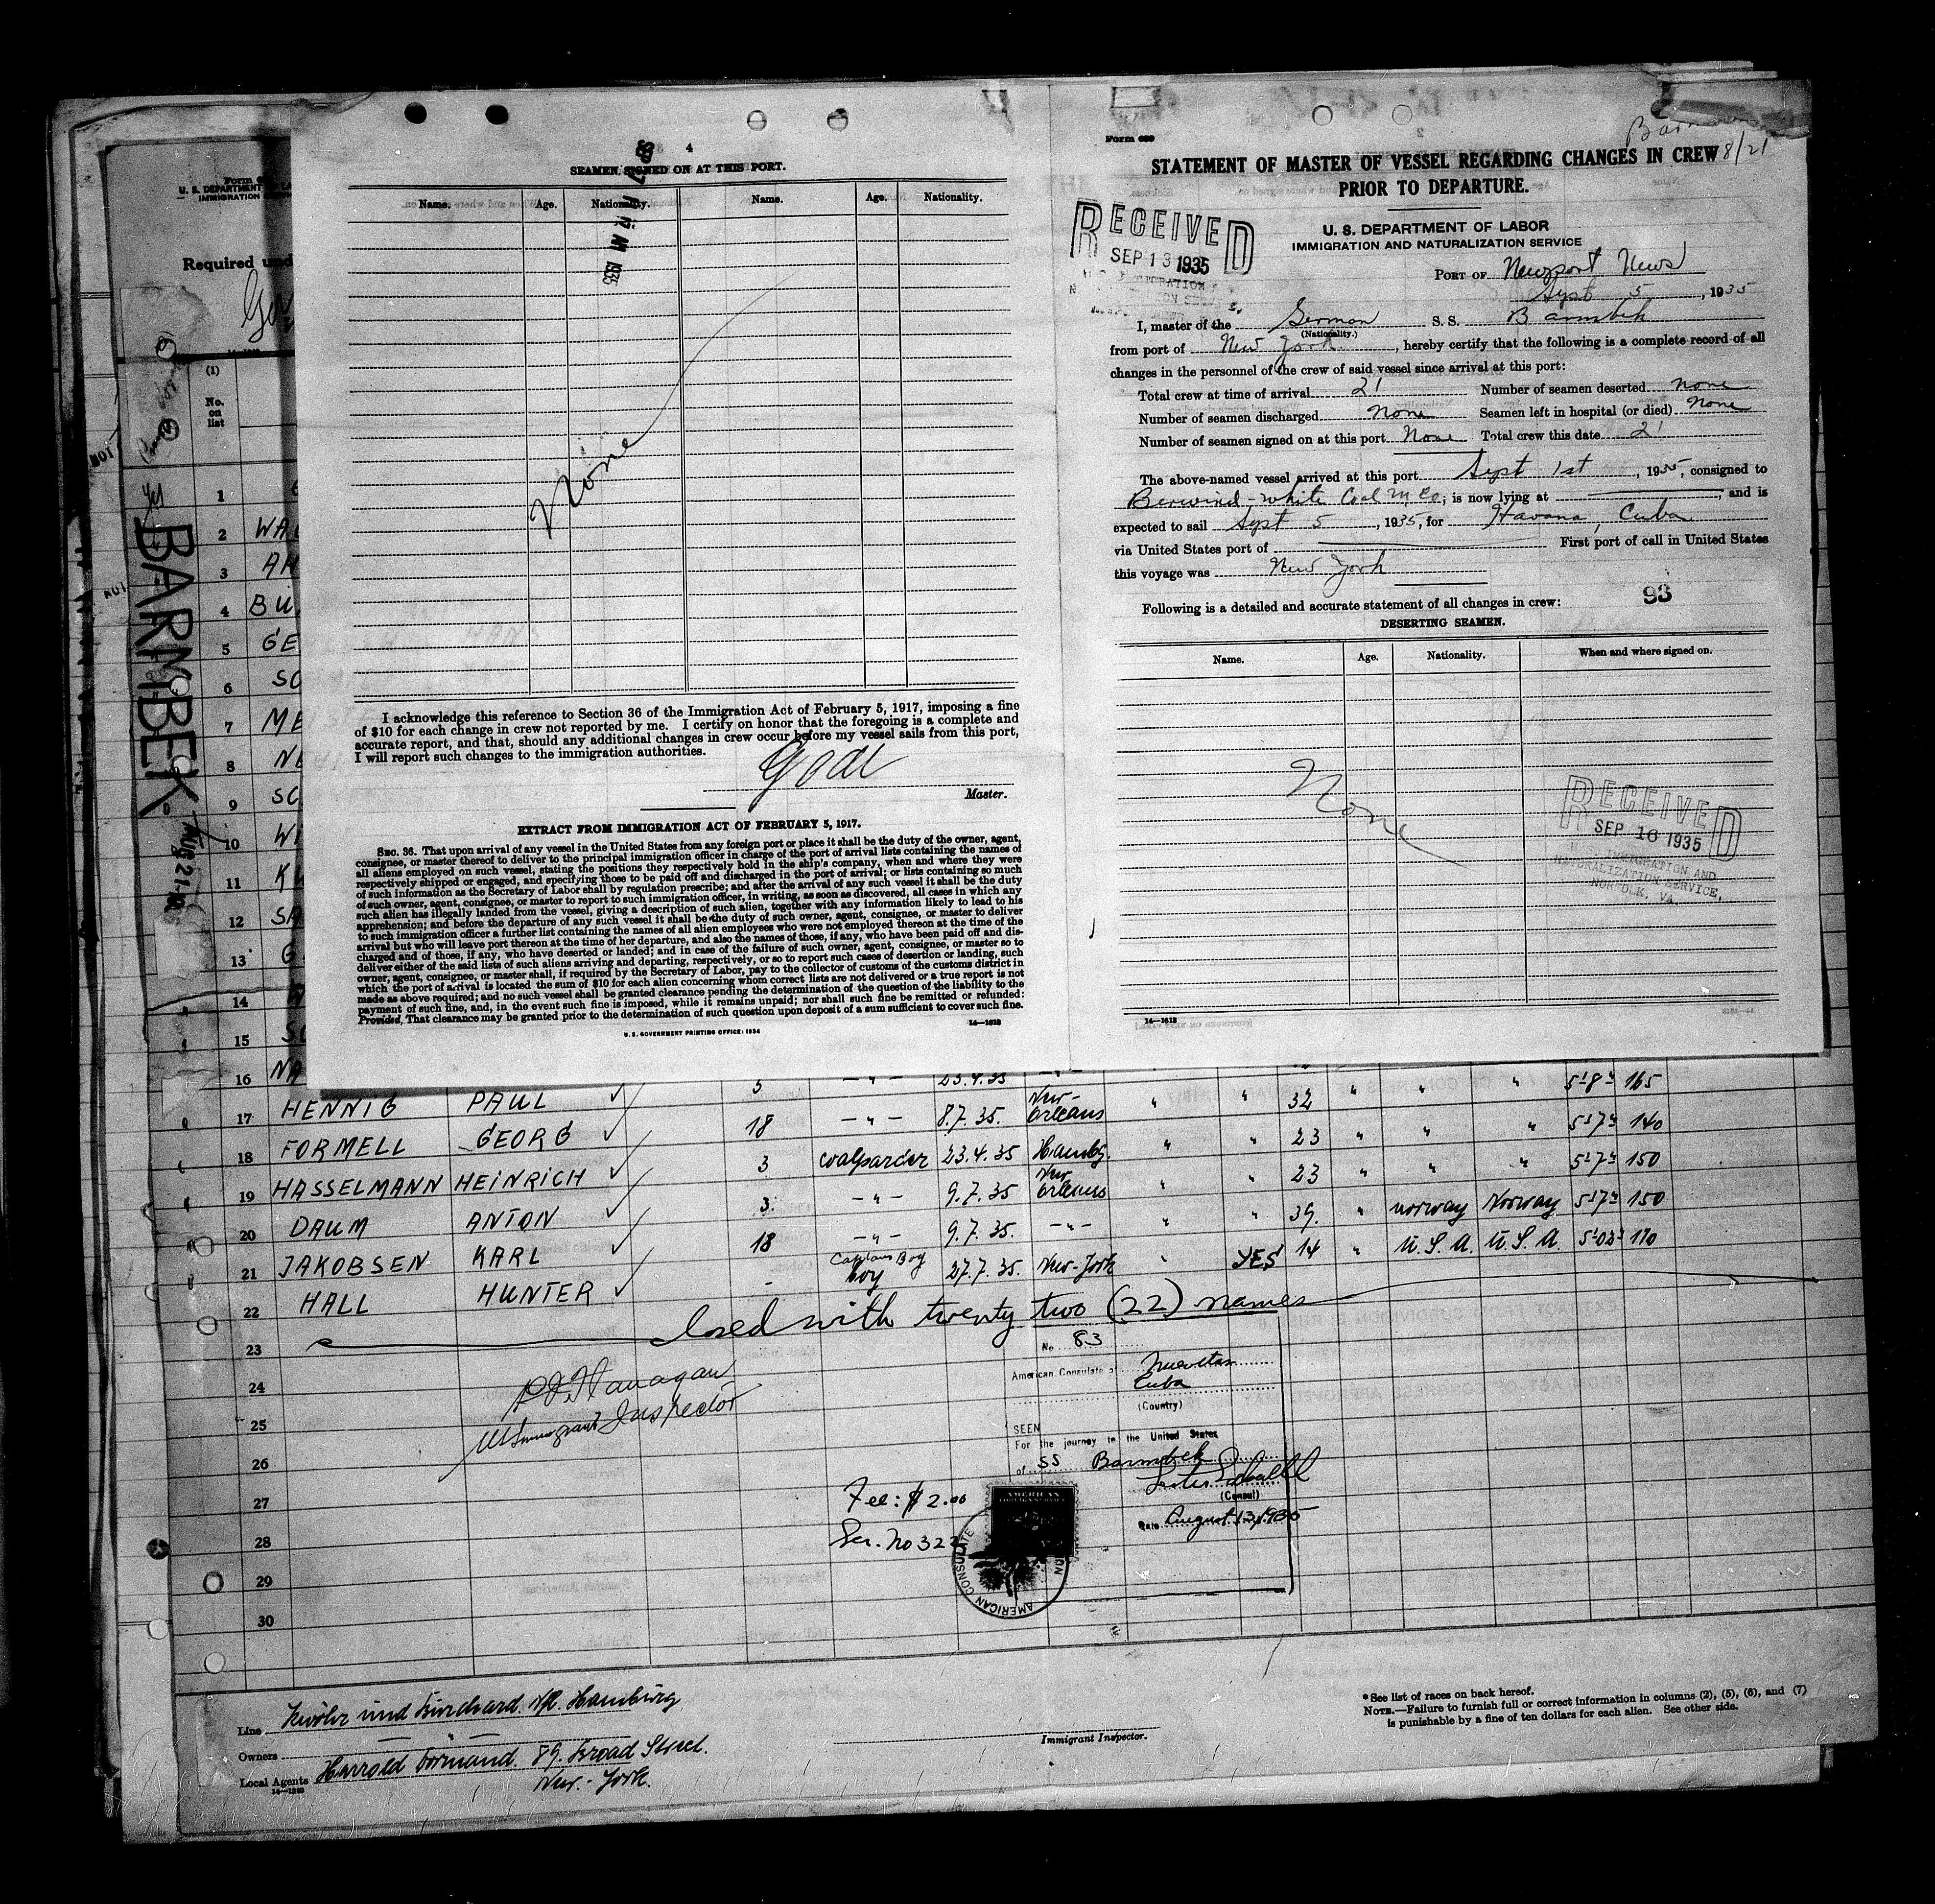 4
SEAMEN SIGNED ON AT THIS PORT.
Name. Age. Nationality. Name. Age. Nationality.
None
I acknowledge this reference to Section 36 of the Immigration Act of February 5, 1917, imposing a fine
of $10 for each change in crew not reported by me. I certify on honor that the foregoing is a complete and
accurate report, and that, should any additional changes in crew occur before my vessel sails from this port,
I will report such changes to the immigration authorities.
Master.
EXTRACT FROM IMMIGRATION ACT OF FEBRUARY 5, 1917.
SEC. 36. That upon arrival of any vessel in the United States from any foreign port or place it shall be the duty of the owner, agent,
consignee, or master thereof to deliver to the principal immigration officer in charge of the port of arrival lists containing the names of
all aliens employed on such vessel, stating the positions they respectively hold in the ship's company, when and where they were
respectively shipped or engaged, and specifying those to be paid off and discharged in the port of arrival; or lists containing so much
of such information as the Secretary of Labor shall by regulation prescribe; and after the arrival of any such vessel it shall be the duty
of such owner, agent, consignee, or master to report to such immigration officer, in writing, as soon as discovered, all cases in which any
such alien has illegally landed from the vessel, giving a description of such alien, together with any information likely to lead to his
apprehension; and before the departure of any such vessel it shall be the duty of such owner, agent, consignee, or master to deliver
to such immigration officer a further list containing the names of all alien employees who were not employed thereon at the time of the
arrival but who will leave port thereon at the time of her departure, and also the names of those, if any, who have been paid off and dis-
charged and of those, if any, who have deserted or landed; and in case of the failure of such owner, agent, consignee, or master so to
deliver either of the said lists of such aliens arriving and departing, respectively, or so to report such cases of desertion or landing, such
owner, agent, consignee, or master shall, if required by the Secretary of Labor, pay to the collector of customs of the customs district in
which the port of arrival is located the sum of $10 for each alien concerning whom correct lists are not delivered or a true report is not
made as above required; and no such vessel shall be granted clearance pending the determination of the question of the liability to the
payment of such fine, and, in the event such fine is imposed, while it remains unpaid; nor shall such fine be remitted or refunded:
Provided, That clearance may be granted prior to the determination of such question upon deposit of a sum sufficient to cover such fine.
U. S. GOVERNMENT PRINTING OFFICE: 1934
14—1613
Form 689
8/21
STATEMENT OF MASTER OF VESSEL REGARDING CHANGES IN CREW
PRIOR TO DEPARTURE.
U. S. DEPARTMENT OF LABOR
IMMIGRATION AND NATURALIZATION SERVICE
RECEIVED
SEP 13 1935
PORT OF Newport News
Sept 5, 1935
I, master of the German S. S. Barmbek
(Nationality.)
from port of New York, hereby certify that the following is a complete record of all
changes in the personnel of the crew of said vessel since arrival at this port:
Total crew at time of arrival 21 Number of seamen deserted none
Number of seamen discharged None Seamen left in hospital (or died) None
Number of seamen signed on at this port None Total crew this date 21
The above-named vessel arrived at this port Sept 1st, 1935, consigned to
Berwind-White Coal M Co; is now lying at, and is
expected to sail Sept 5, 1935, for Havana, Cuba
via United States port of First port of call in United States
this voyage was New York
93
Following is a detailed and accurate statement of all changes in crew:
DESERTING SEAMEN.
Name. Age. Nationality. When and where signed on.
None
RECEIVED
SEP 16 1935
IMMIGRATION AND
NATURALIZATION SERVICE,
NORFOLK, VA.
14—1613
U. S. DEPARTMENT
IMMIGRATION
Required und
(1)
No.
on
list
BARMBEK
Aug 21-
1
2 WA
3 AH
4 BU
5 GE
6 SC
7 ME
8 NE
9 SC
10 WI
11 KU
12 SA
13 G
14
15 SC
16 NA 3 — " — 23.4.35
17 HENNIG PAUL 18 — " — 8.7.35. New-Orleans " " 32 " " " 5'8" 165
18 FORMELL GEORG 3 coalpasser 23.4.35 Hambg. " " 23 " " " 5'7" 140
19 HASSELMANN HEINRICH 3. — " — 9.7.35 New Orleans " " 23 " " " 5'7" 150
20 DAUM ANTON 18 — " — 9.7.35. — " — " " 39. " norway Norway 5'7" 150
21 JAKOBSEN KARL - Captains Boy boy 27.7.35. New-York " YES 14 " U.S.A. U.S.A. 5'02" 110
22 HALL HUNTER
closed with twenty two (22) names
23
24
25
26
27
28
29
30
P J Flanagan
US Immigrant Inspector
No 83
American Consulate at Nuevitas
Cuba
(Country)
SEEN
For the journey to the United States
of SS Barmbek
(Consul)
Date August 13, 1935
Fee: $2.00
Ser. No 322
AMERICAN
FOREIGN SERVICE
AMERICAN CONSULATE
Line Knöhr und Burchard Nfl. Hamburg
Owners — " —
Local Agents Harrold Dormand. 89. Broad Street.
New-York.
14—1240
Immigrant Inspector.
*See list of races on back hereof.
NOTE.—Failure to furnish full or correct information in columns (2), (5), (6), and (7)
is punishable by a fine of ten dollars for each alien. See other side.